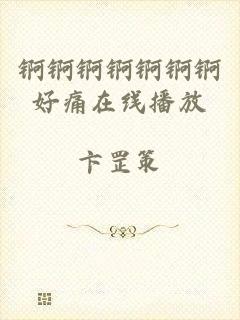 锕锕锕锕锕锕锕
好痛在线播放
卞罡策